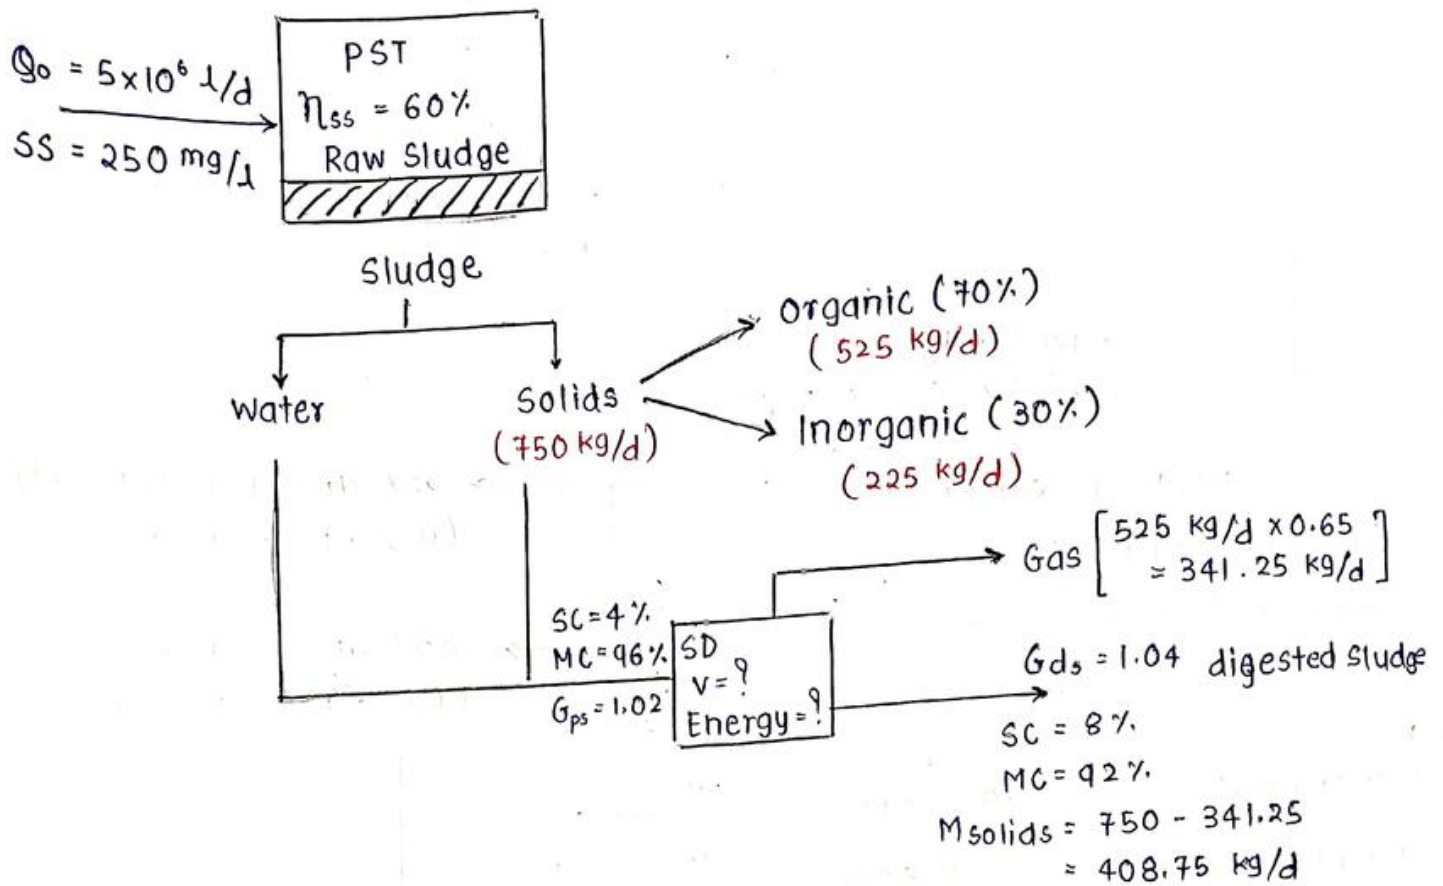 PST
Q₀ = 5×10⁶ l/d
η_ss = 60%
SS = 250 mg/l
Raw Sludge
Sludge
Water
Solids
(750 kg/d)
Organic (70%)
(525 kg/d)
Inorganic (30%)
(225 kg/d)
Gas [525 kg/d × 0.65
= 341.25 kg/d]
SC = 4%
MC = 96%
G_ps = 1.02
SD
V = ?
Energy = ?
G_ds = 1.04 digested sludge
SC = 8%
MC = 92%
M solids = 750 - 341.25
= 408.75 kg/d